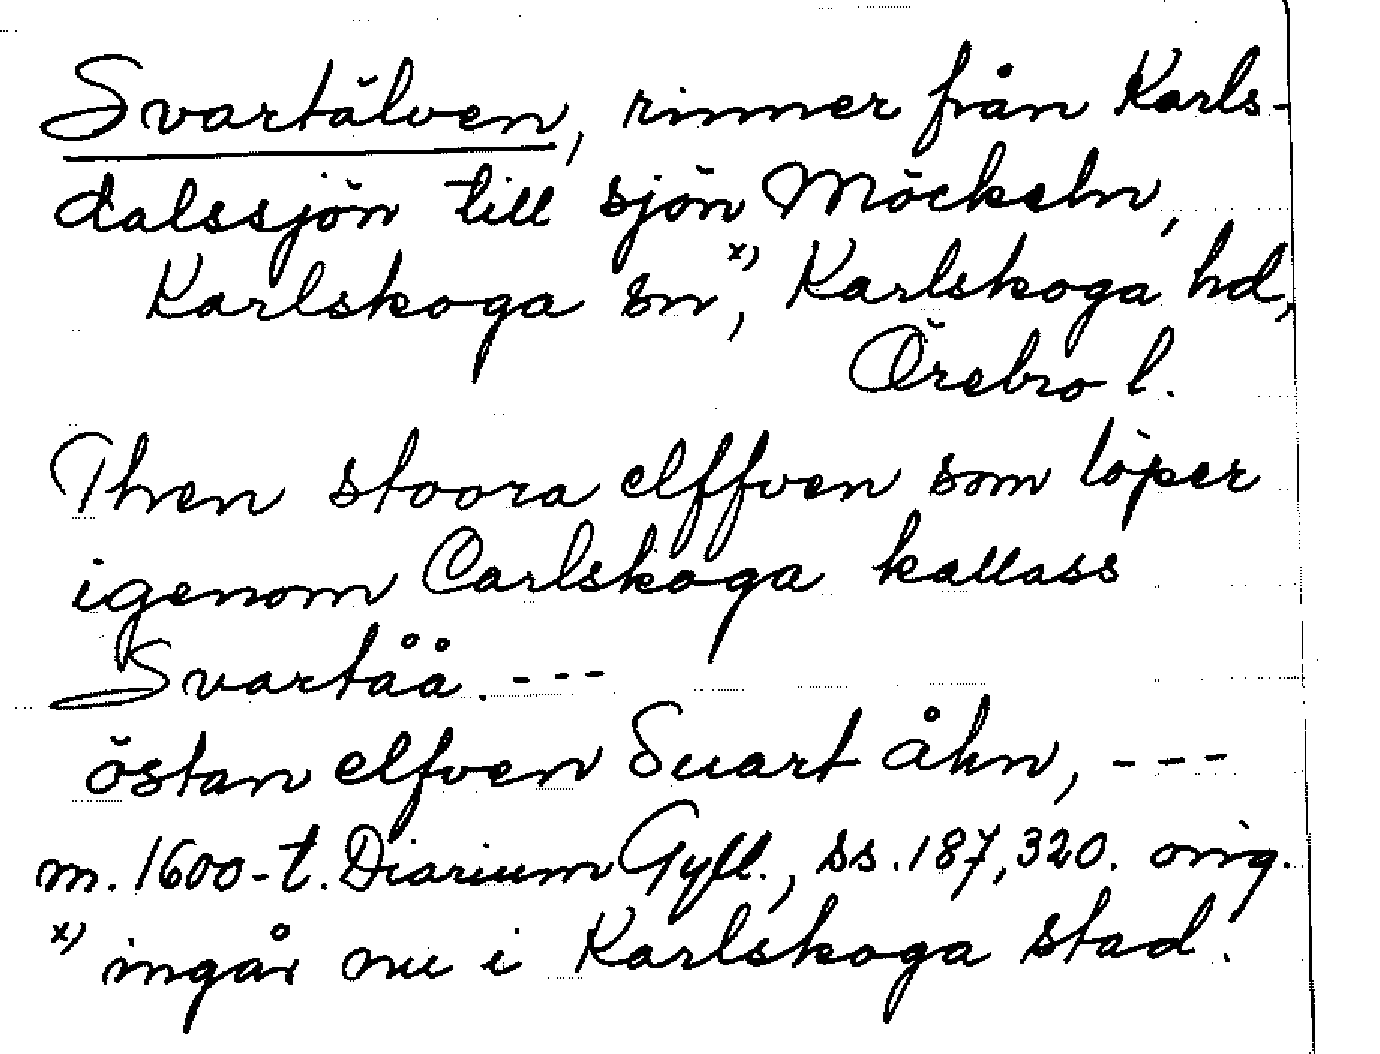 Svartälven, rinner från Karls-
dalssjön till sjön Möckeln,
Karlskoga sn x), Karlskoga hd,
Örebro l.
Then stoora elffven som löper
igenom Carlskoga kallass
Svartåå. - - -
östan elfven Suart åhn, - - -
m. 1600-t. Diarium Gyll., ss. 187, 320. orig.
x) ingår nu i Karlskoga stad.